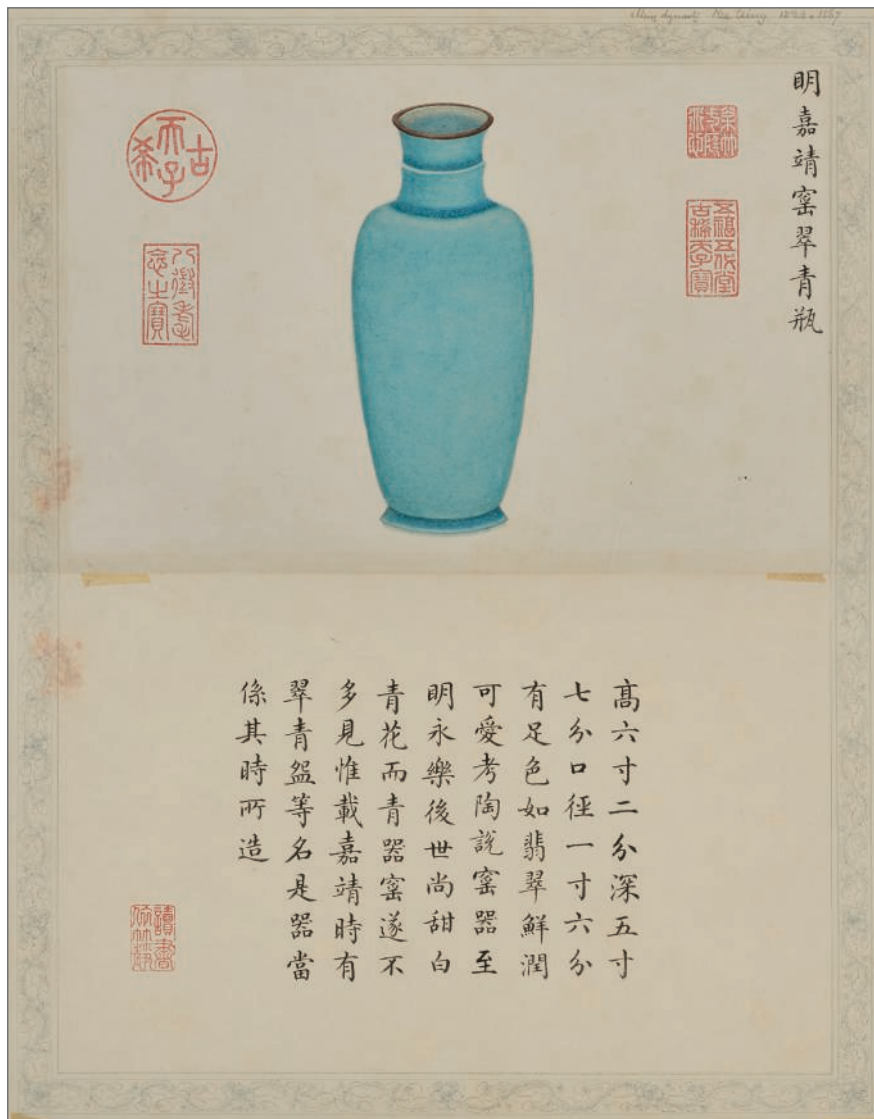 Ming dynasty Kea Tsing 1522-1567
明嘉靖窑翠青瓶
五福五代堂古稀天子寶
古希天子
八徵耄念之寶
高六寸二分深五寸
七分口徑一寸六分
有足色如翡翠鮮潤
可愛考陶說窑器至
明永樂後世尚甜白
青花而青器窑遂不
多見惟載嘉靖時有
翠青盌等名是器當
係其時所造